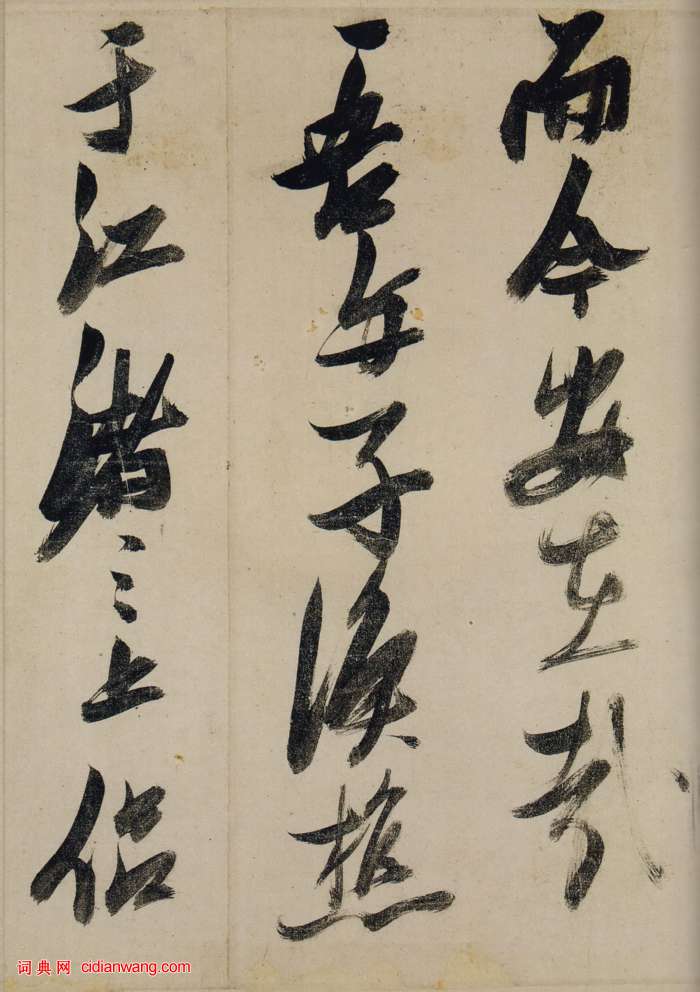 而今安在哉
吾與子漁樵
于江渚之上侶
词典网 cidianwang.com